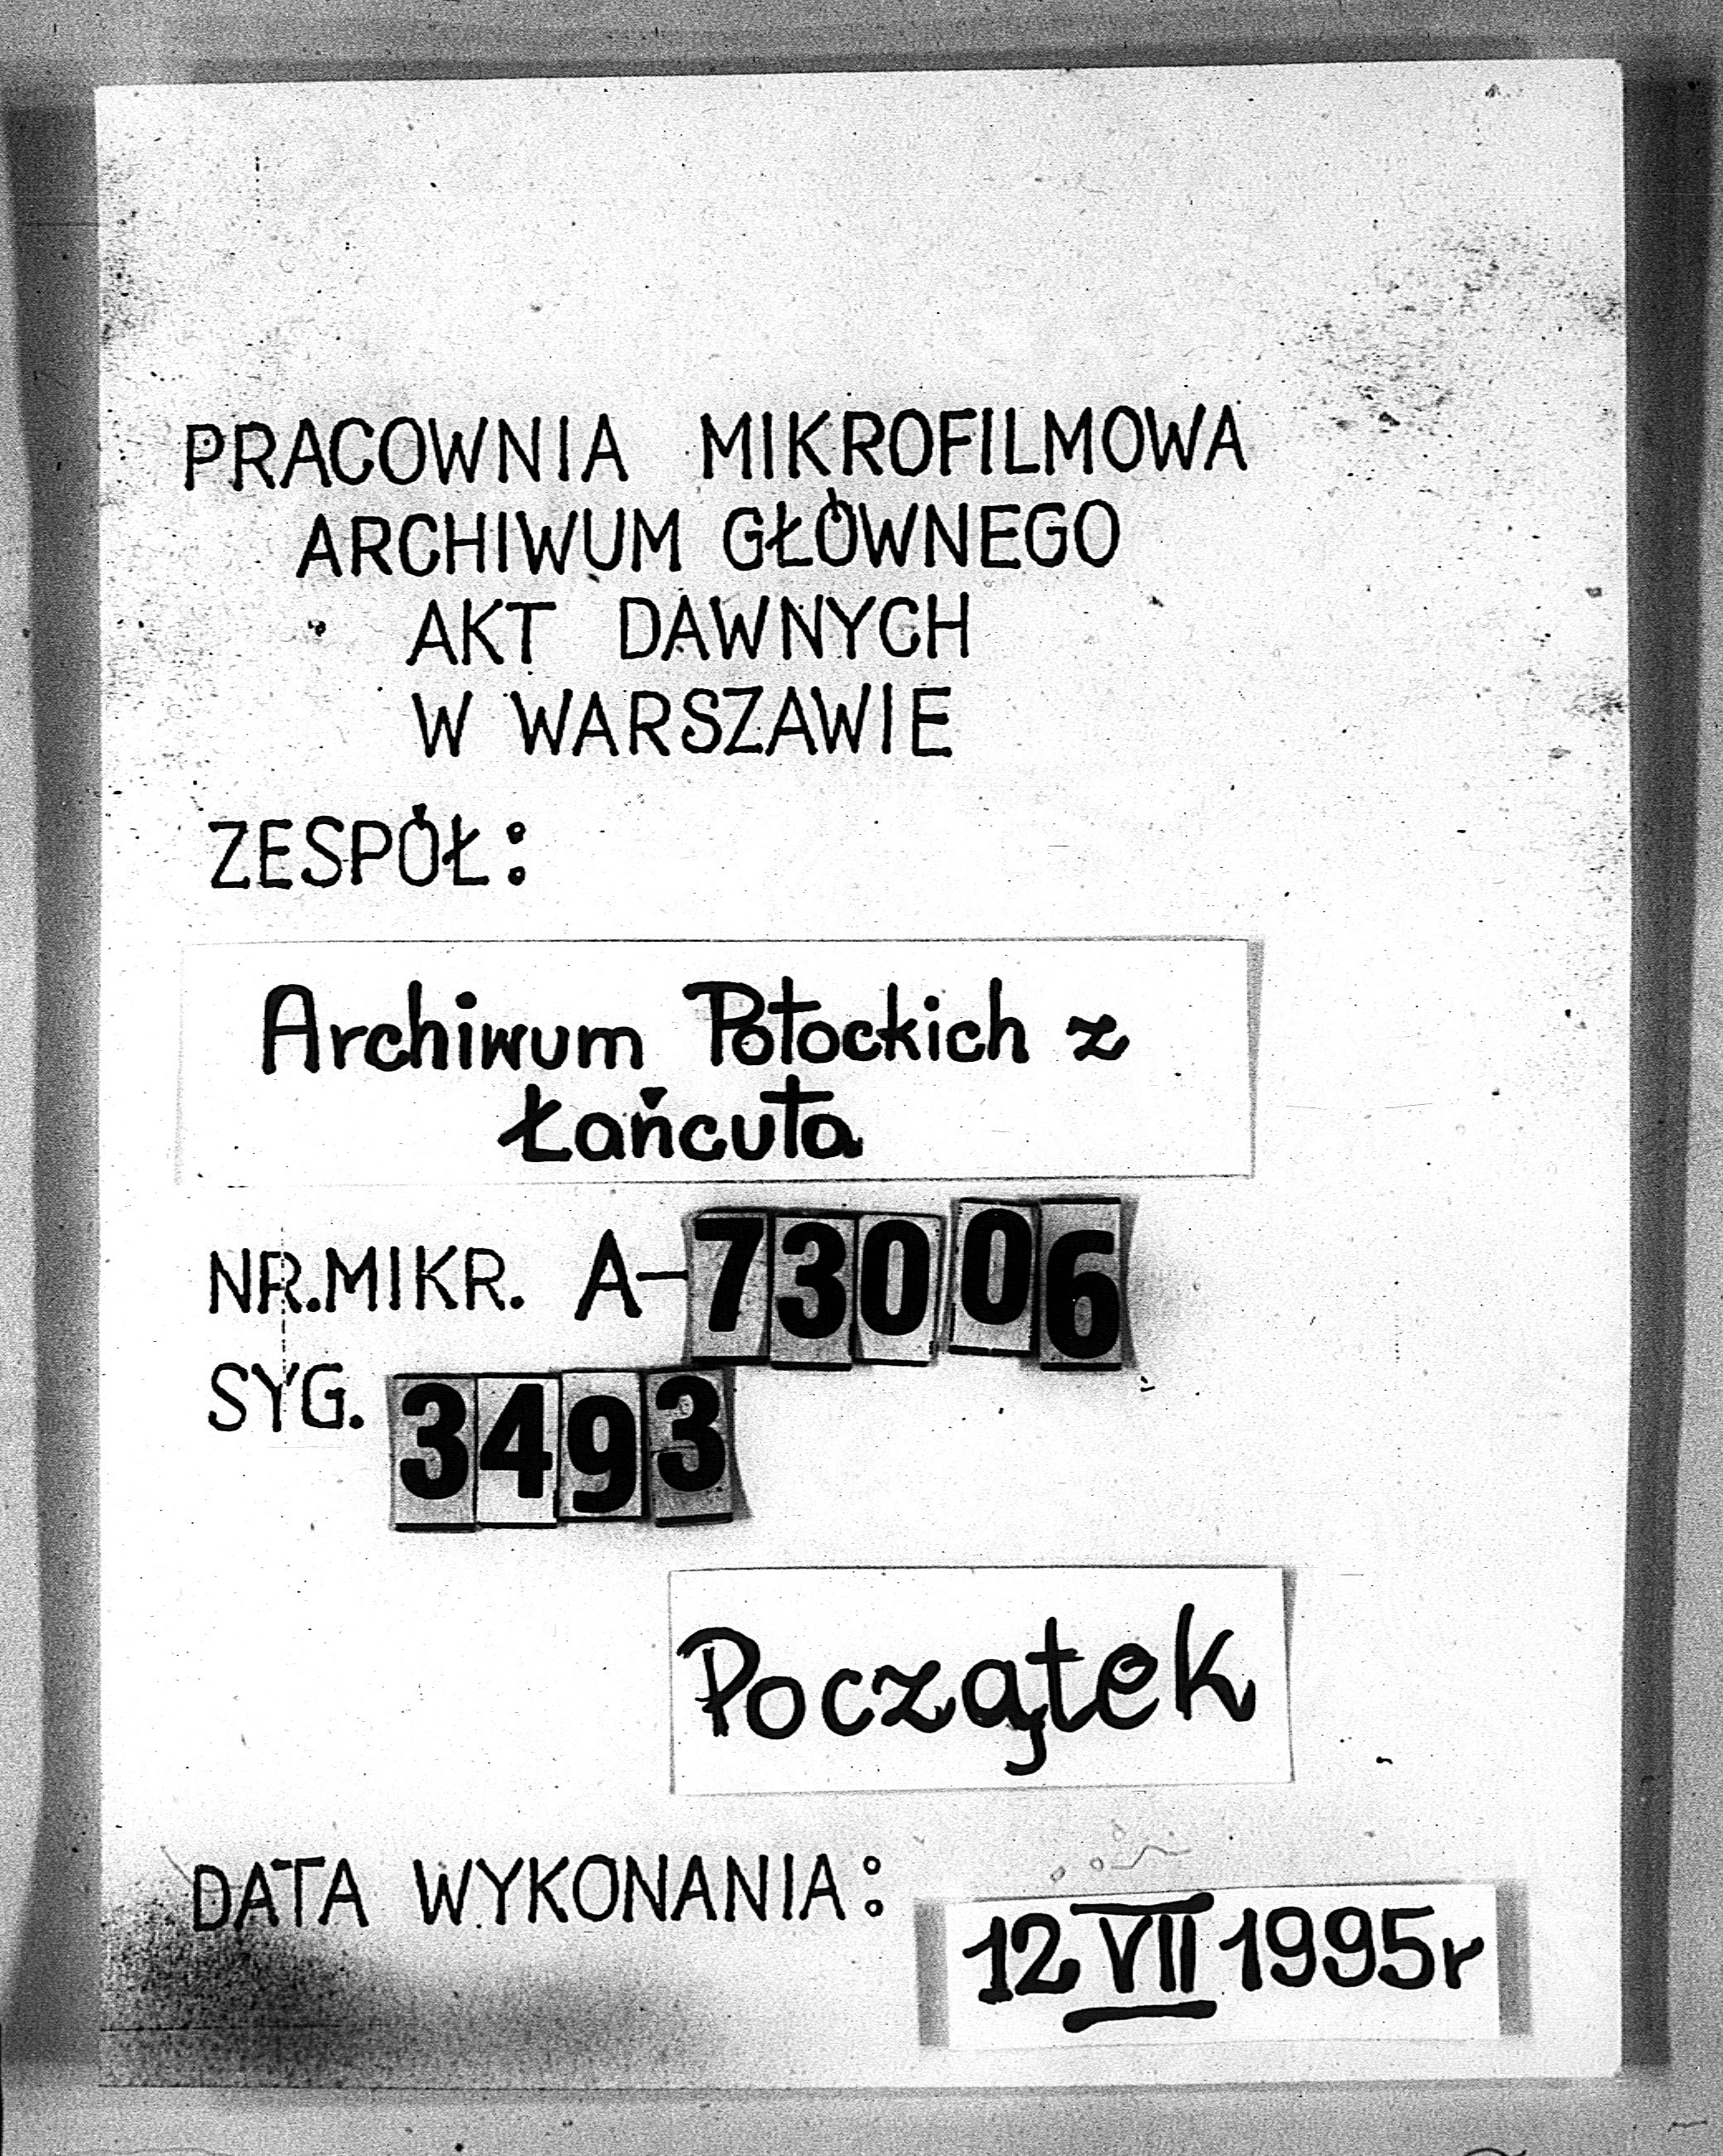 PRACOWNIA MIKROFILMOWA
ARCHIWUM GŁÓWNEGO
AKT DAWNYCH
W WARSZAWIE
ZESPÓŁ:
Archiwum Potockich z
Łańcuta
NR. MIKR. A-73006
SYG. 3493
Początek
DATA WYKONANIA: 12 VII 1995r